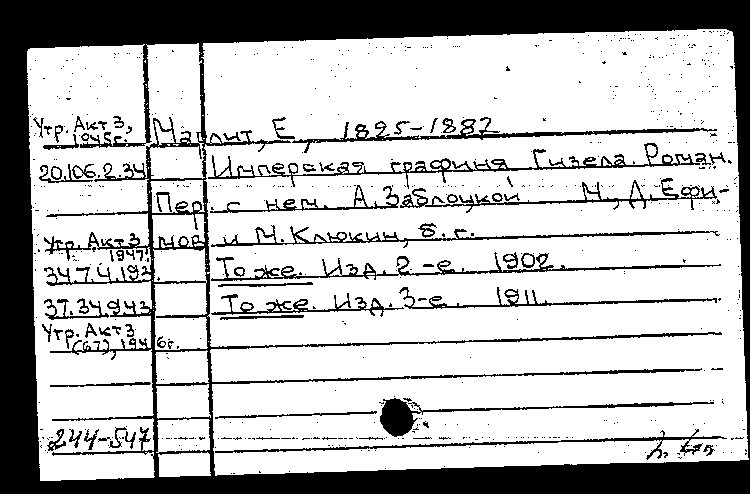 Утр. Акт 3, 1945г. Марлит, Е., 1825-1887
20.106.2.34 Имперская графиня Гизела. Роман.
Пер. с нем. А. Заблоцкой М., Д. Ефи-
Утр. Акт 3 1947г. мов и М. Клюкин, б. г.
34.7.4.192. То же. Изд. 2-е. 1902.
37.34.943 То же. Изд. 3-е. 1911.
Утр. Акт 3
(67), 1946г.
244-547